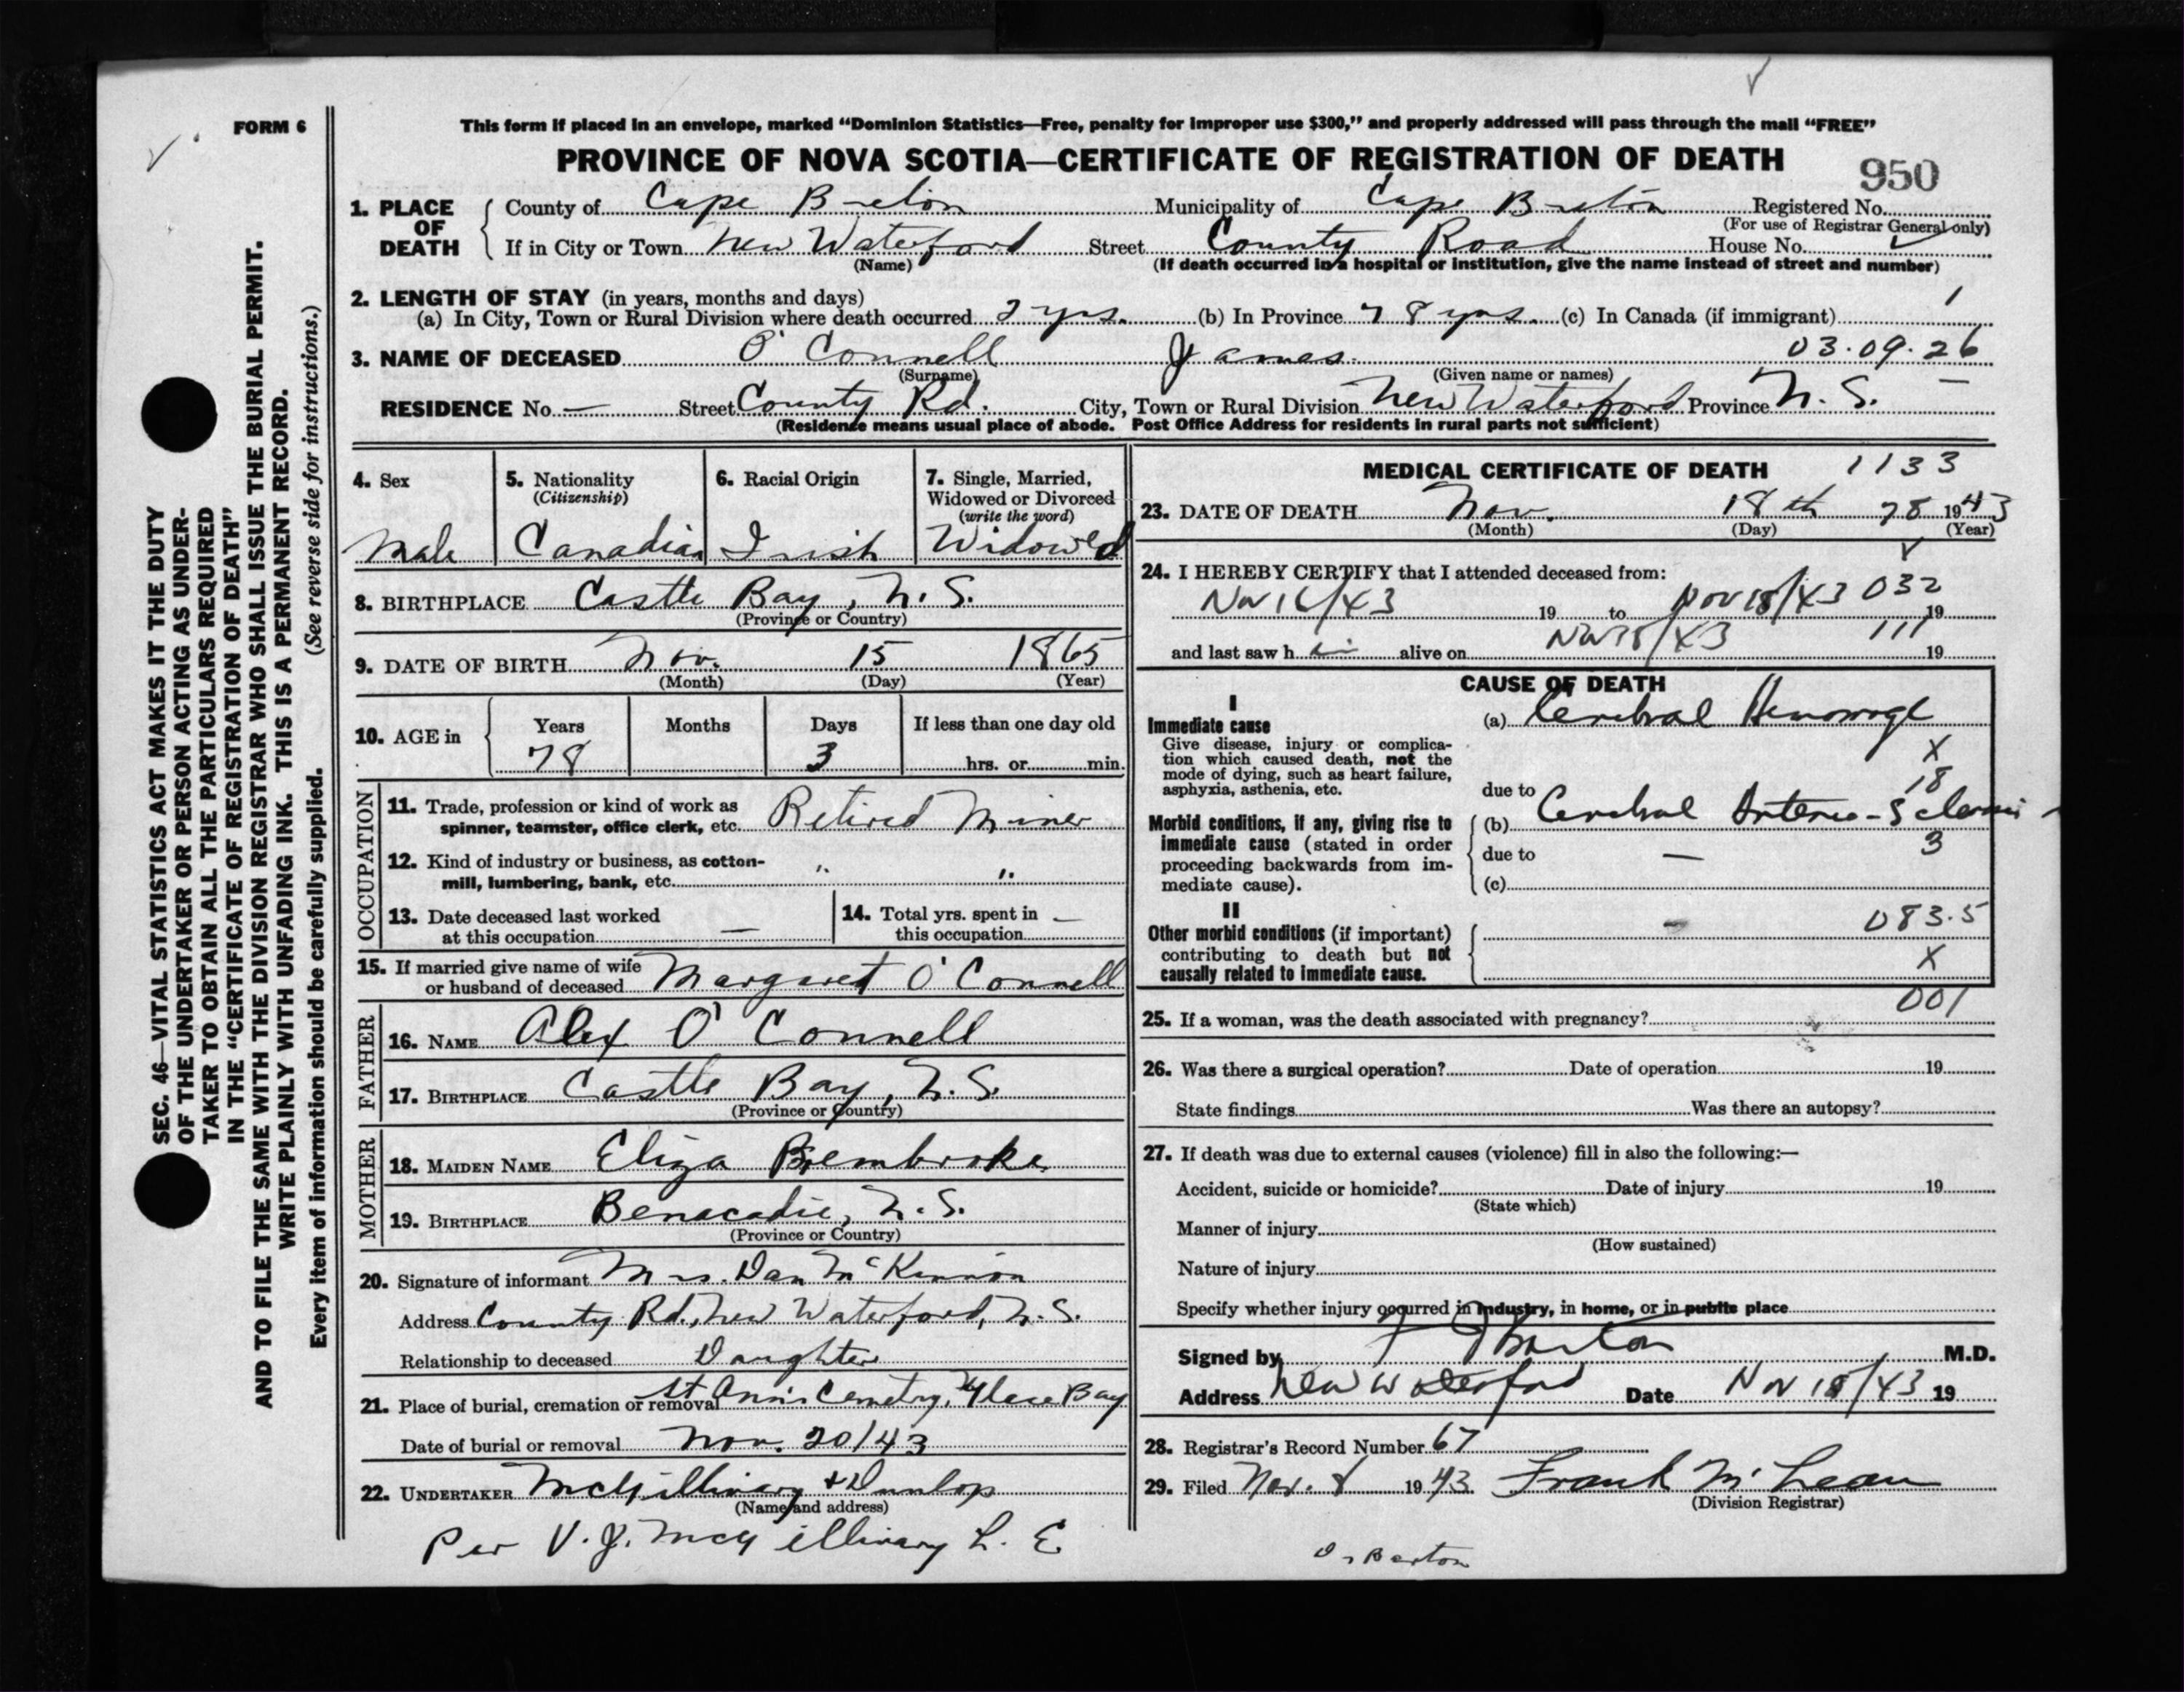 FORM 6
This form if placed in an envelope, marked “Dominion Statistics—Free, penalty for improper use $300,” and properly addressed will pass through the mail “FREE”
PROVINCE OF NOVA SCOTIA—CERTIFICATE OF REGISTRATION OF DEATH
950
1. PLACE OF DEATH
County of Cape Breton Municipality of Cape Breton Registered No.
(For use of Registrar General only)
If in City or Town New Waterford Street County Road House No.
(Name) (If death occurred in a hospital or institution, give the name instead of street and number)
2. LENGTH OF STAY (in years, months and days)
(a) In City, Town or Rural Division where death occurred 2 yrs. (b) In Province 78 yrs. (c) In Canada (if immigrant)
3. NAME OF DECEASED O'Connell James 03.09.26
(Surname) (Given name or names)
RESIDENCE No. — Street County Rd. City, Town or Rural Division New Waterford Province N. S.
(Residence means usual place of abode. Post Office Address for residents in rural parts not sufficient)
4. Sex
Male
5. Nationality
(Citizenship)
Canadian
6. Racial Origin
Irish
7. Single, Married, Widowed or Divorced
(write the word)
Widowed
8. BIRTHPLACE Castle Bay, N. S.
(Province or Country)
9. DATE OF BIRTH Nov. 15 1865
(Month) (Day) (Year)
10. AGE in Years Months Days If less than one day old
78 3 hrs. or min.
OCCUPATION
11. Trade, profession or kind of work as
spinner, teamster, office clerk, etc. Retired Miner
12. Kind of industry or business, as cotton-
mill, lumbering, bank, etc. " "
13. Date deceased last worked
at this occupation —
14. Total yrs. spent in
this occupation —
15. If married give name of wife
or husband of deceased Margaret O'Connell
FATHER
16. NAME Alex O'Connell
17. BIRTHPLACE Castle Bay, N. S.
(Province or Country)
MOTHER
18. MAIDEN NAME Eliza Bembroke
19. BIRTHPLACE Benacadie, N. S.
(Province or Country)
20. Signature of informant Mrs. Dan McKinnon
Address County Rd., New Waterford, N. S.
Relationship to deceased Daughter
21. Place of burial, cremation or removal St Ann's Cemetry, Glace Bay
Date of burial or removal Nov. 20/43
22. UNDERTAKER McGillivary & Dunlop
(Name and address)
Per V. J. McGillivary L. E.
MEDICAL CERTIFICATE OF DEATH 1133
23. DATE OF DEATH Nov. 18th 78 1943
(Month) (Day) (Year)
24. I HEREBY CERTIFY that I attended deceased from:
Nov 16/43 19 to Nov 18/43 032 19
and last saw h im alive on Nov 18/43 111 19
CAUSE OF DEATH
I
Immediate cause
Give disease, injury or complica-
tion which caused death, not the
mode of dying, such as heart failure,
asphyxia, asthenia, etc.
(a) Cerebral Hemorrage
X
18
due to
Morbid conditions, if any, giving rise to
immediate cause (stated in order
proceeding backwards from im-
mediate cause).
(b) Cerebral Arterio-Sclerosis
due to — 3
(c)
II
Other morbid conditions (if important)
contributing to death but not
causally related to immediate cause.
083.5
X
001
25. If a woman, was the death associated with pregnancy?
26. Was there a surgical operation? Date of operation 19
State findings Was there an autopsy?
27. If death was due to external causes (violence) fill in also the following:—
Accident, suicide or homicide? Date of injury 19
(State which)
Manner of injury
(How sustained)
Nature of injury
Specify whether injury occurred in industry, in home, or in public place
Signed by Barton M.D.
Address New Waterford Date Nov 18/43 19
28. Registrar's Record Number 67
29. Filed Nov. 1943. Frank McLean
(Division Registrar)
Dr Barton
SEC. 46—VITAL STATISTICS ACT MAKES IT THE DUTY
OF THE UNDERTAKER OR PERSON ACTING AS UNDER-
TAKER TO OBTAIN ALL THE PARTICULARS REQUIRED
IN THE “CERTIFICATE OF REGISTRATION OF DEATH”
AND TO FILE THE SAME WITH THE DIVISION REGISTRAR WHO SHALL ISSUE THE BURIAL PERMIT.
WRITE PLAINLY WITH UNFADING INK. THIS IS A PERMANENT RECORD.
Every item of information should be carefully supplied. (See reverse side for instructions.)